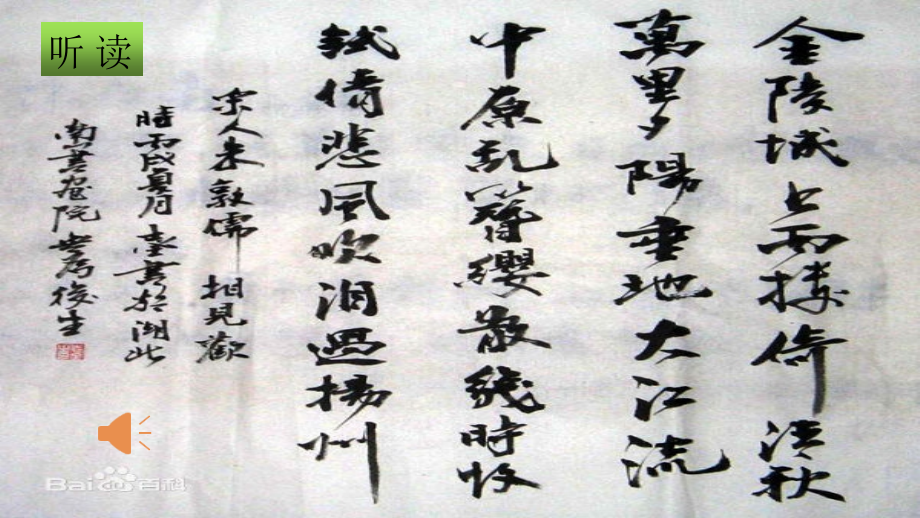 听读
金陵城上西楼倚清秋
萬里夕陽垂地大江流
中原乱簪纓散幾時收
試倩悲風吹泪過揚州
宋人朱敦儒相見歡
時丙戌夏月書於湖北
南書畫院後生
Bai百科